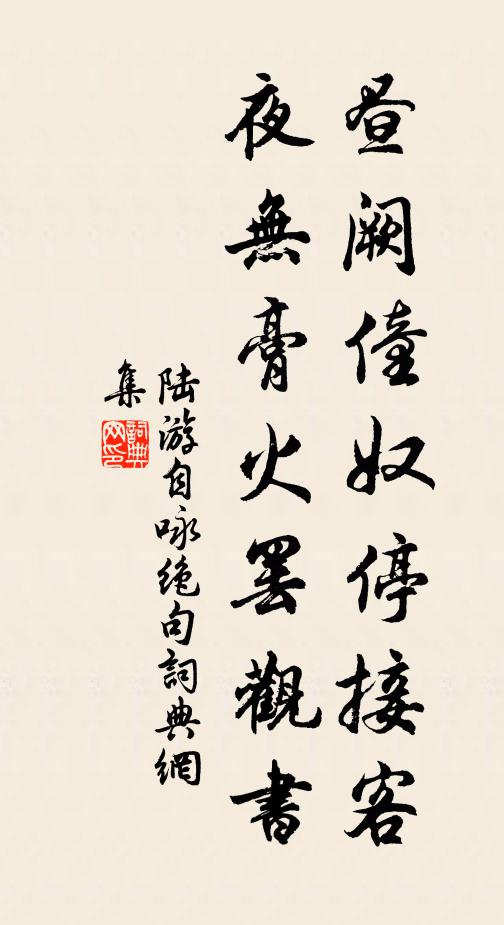 昼阙僮奴停接客
夜無膏火罢觀書
陆游自咏绝句詞典網
集
詞典网印